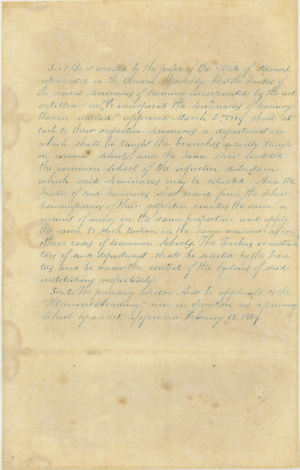 Sec 1 Be it enacted by the people of the State of Illinois
represented in the General Assembly That the Trustees of
the several Seminaries of learning incorporated by the act
entitled "an act to incorporate the Seminaries of learning
therein named" approved March 2nd 1839, shall at-
tach to their respective Seminaries a department in
which shall be taught the branches usually taught
in common schools, and the same shall constitute
the common School of the respective districts in
which said Seminaries may be situated. And the
Trustees of said Seminaries shall draw from the School
Commissioners of their respective counties the same a-
mount of money in the same proportion and apply
the same to such tuition in the same manner as in
other cases of Common Schools. The Teachers or instruc-
tors of said department shall be selected by the Trus-
tees and be under the control of the bylaws of said
institutions respectively.
Sec 2. The preceding Section shall be applicable to the
Academy" now in operation as a primary
School by an act approved February 12, 1839.